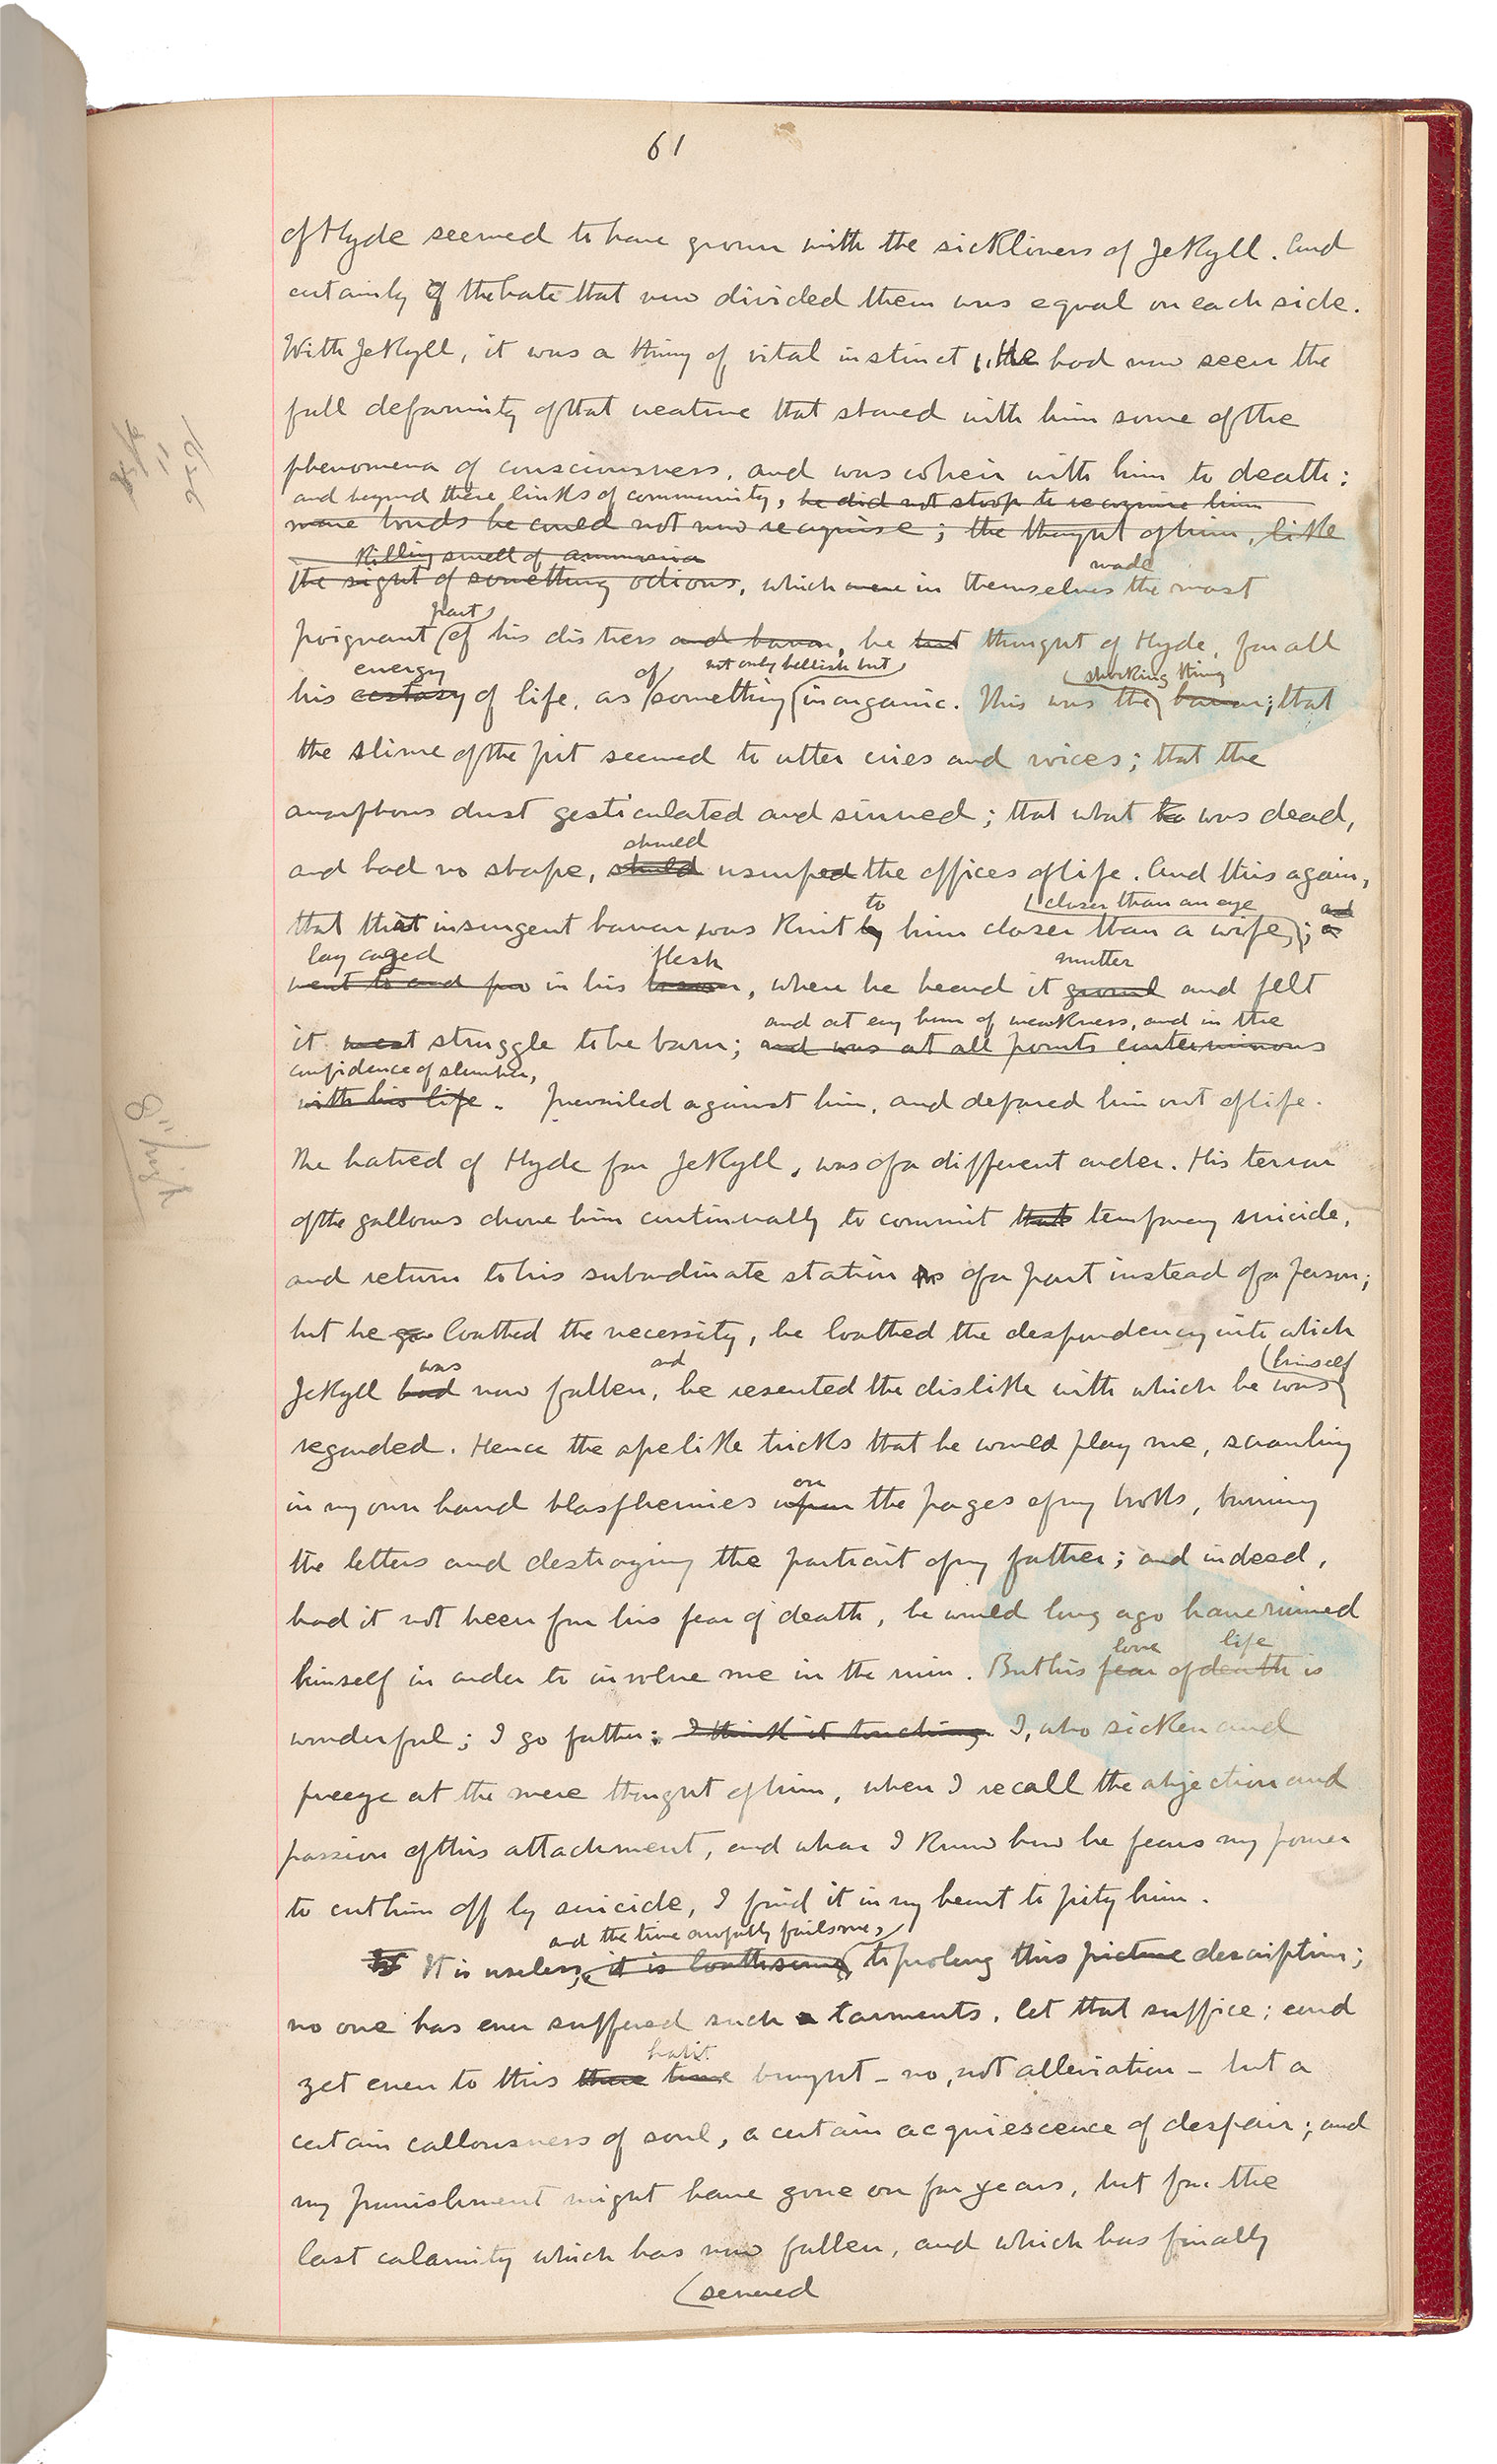 61
of Hyde seemed to have grown with the sickliness of Jekyll. And
certainly if the hate that now divided them was equal on each side.
With Jekyll, it was a thing of vital instinct. He had now seen the
full deformity of that creature that shared with him some of the
phenomena of consciousness, and was coheir with him to death:
and beyond these links of community, he did not stoop to recognise him
more bonds he could not now recognise; the thought of him, like
killing smell of ammonia
the sight of something odious, which were in themselves made the most
poignant part of his distress and horror, he but thought of Hyde, for all
his ecstasy energy of life, as of something not only hellish but inorganic. This was the shocking thing horror; that
the slime of the pit seemed to utter cries and voices; that the
amorphous dust gesticulated and sinned; that what was dead,
and had no shape, should should usurped the offices of life. And this again,
that that insurgent horror was knit by to him closer than a wife, closer than an eye; and
lay caged
went to and fro in his bosom flesh, where he heard it growl mutter and felt
it struggle to be born; and was at all points conterminous
and at evy hour of weakness, and in the
confidence of slumber,
with his life. prevailed against him, and deposed him out of life.
The hatred of Hyde for Jekyll, was of a different order. His terror
of the gallows drove him continually to commit that temporary suicide,
and return to his subordinate station of a part instead of a person;
but he loathed the necessity, he loathed the despondency into which
Jekyll had was now fallen, and he resented the dislike with which he was himself
regarded. Hence the apelike tricks that he would play me, scrawling
in my own hand blasphemies upon on the pages of my books, burning
the letters and destroying the portrait of my father; and indeed,
had it not been for his fear of death, he would long ago have ruined
himself in order to involve me in the ruin. But his fear love of death life is
wonderful; I go further: I think it touching. I, who sicken and
freeze at the mere thought of him, when I recall the abjection and
passion of this attachment, and when I know how he fears my power
to cut him off by suicide, I find it in my heart to pity him.
and the time awfully fails me,
It is useless, it is loathsome, to prolong this picture description;
no one has ever suffered such a torments, let that suffice; and
yet even to this there time habit brought - no, not alleviation - but a
certain callousness of soul, a certain acquiescence of despair; and
my punishment might have gone on for years, but for the
last calamity which has now fallen, and which has finally
severed